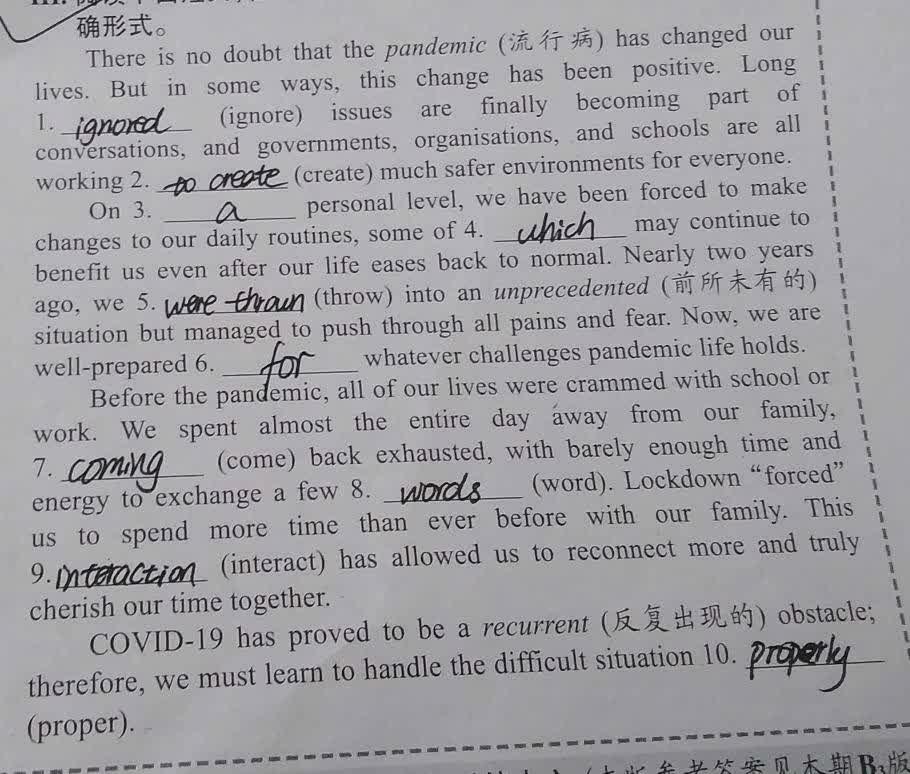 确形式。
There is no doubt that the pandemic (流行病) has changed our
lives. But in some ways, this change has been positive. Long
1. ignored (ignore) issues are finally becoming part of
conversations, and governments, organisations, and schools are all
working 2. to create (create) much safer environments for everyone.
On 3. a personal level, we have been forced to make
changes to our daily routines, some of 4. which may continue to
benefit us even after our life eases back to normal. Nearly two years
ago, we 5. were thrown (throw) into an unprecedented (前所未有的)
situation but managed to push through all pains and fear. Now, we are
well-prepared 6. for whatever challenges pandemic life holds.
Before the pandemic, all of our lives were crammed with school or
work. We spent almost the entire day away from our family,
7. coming (come) back exhausted, with barely enough time and
energy to exchange a few 8. words (word). Lockdown “forced”
us to spend more time than ever before with our family. This
9. interaction (interact) has allowed us to reconnect more and truly
cherish our time together.
COVID-19 has proved to be a recurrent (反复出现的) obstacle;
therefore, we must learn to handle the difficult situation 10. properly
(proper).
参考答案见本期B₃版